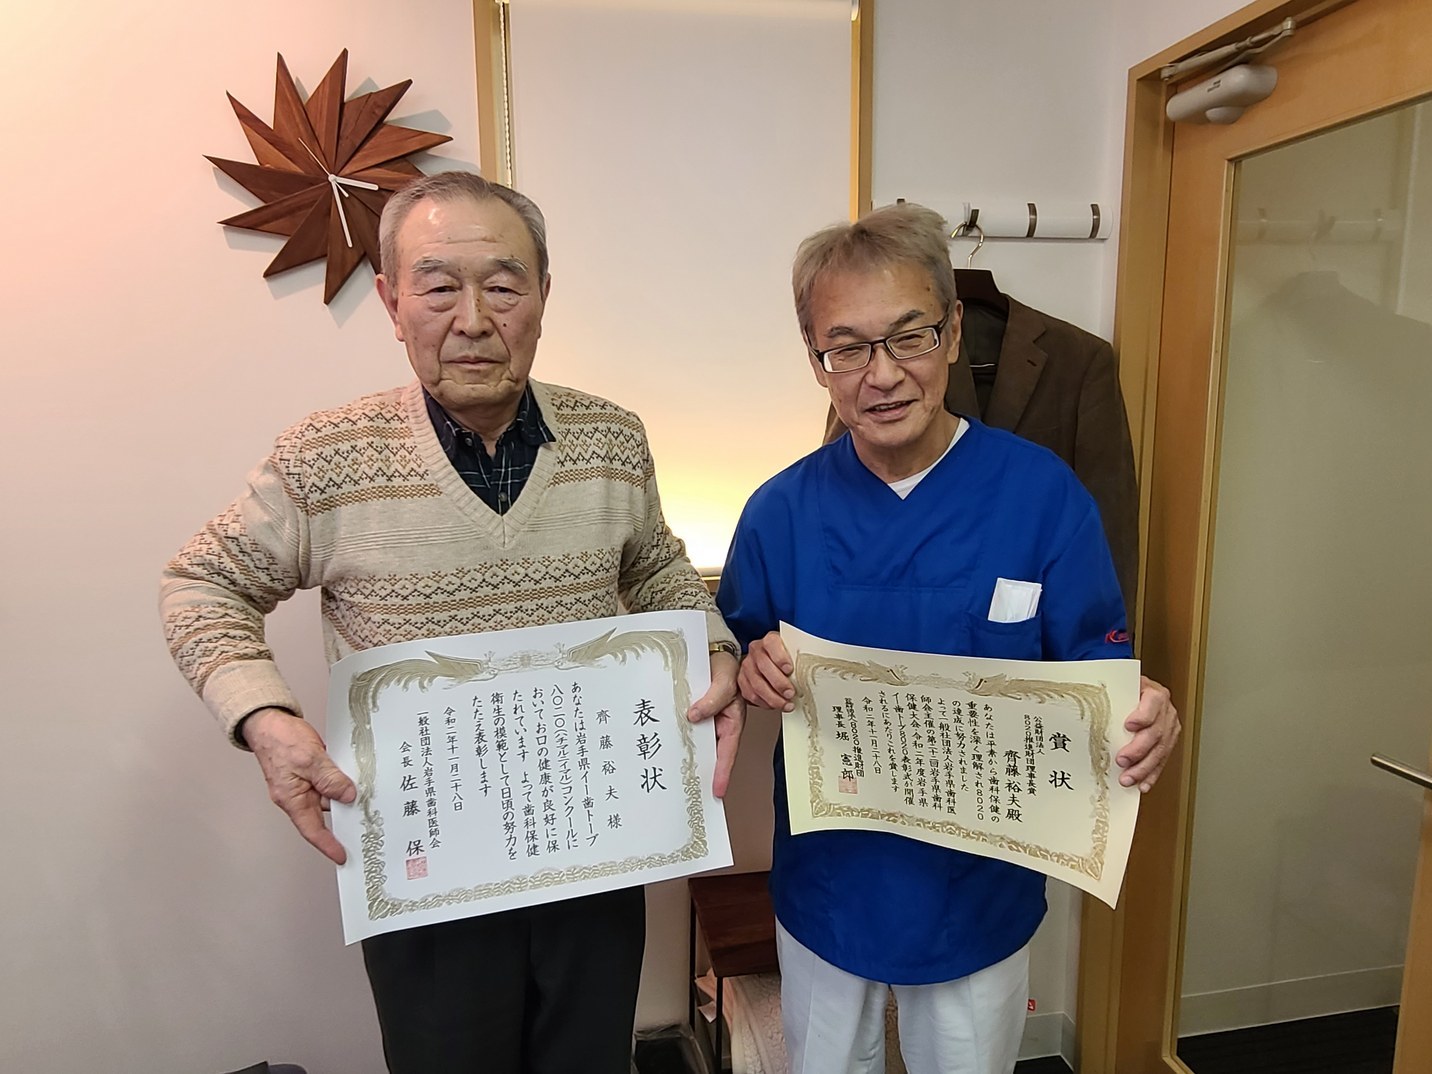 表彰状
齊藤裕夫様
あなたは岩手県イー歯トーブ
八〇二〇(ハチマルニイマル)コンクールに
おいてお口の健康が良好に保
たれています よって歯科保健
衛生の模範として日頃の努力を
たたえ表彰します
令和二年十一月二十八日
一般社団法人岩手県歯科医師会
会長 佐藤 保
公益財団法人
8020推進財団理事長賞
賞状
齊藤裕夫殿
あなたは平素から歯科保健の
重要性を深く理解され8020
の達成に努力されました
よって一般社団法人岩手県歯科医
師会主催の第二十二回岩手県歯科
保健大会 令和二年度岩手県
イー歯トーブ8020表彰式が開催
されるにあたりこれを賞します
令和二年十一月二十八日
公益財団法人8020推進財団
理事長 堀 憲郎